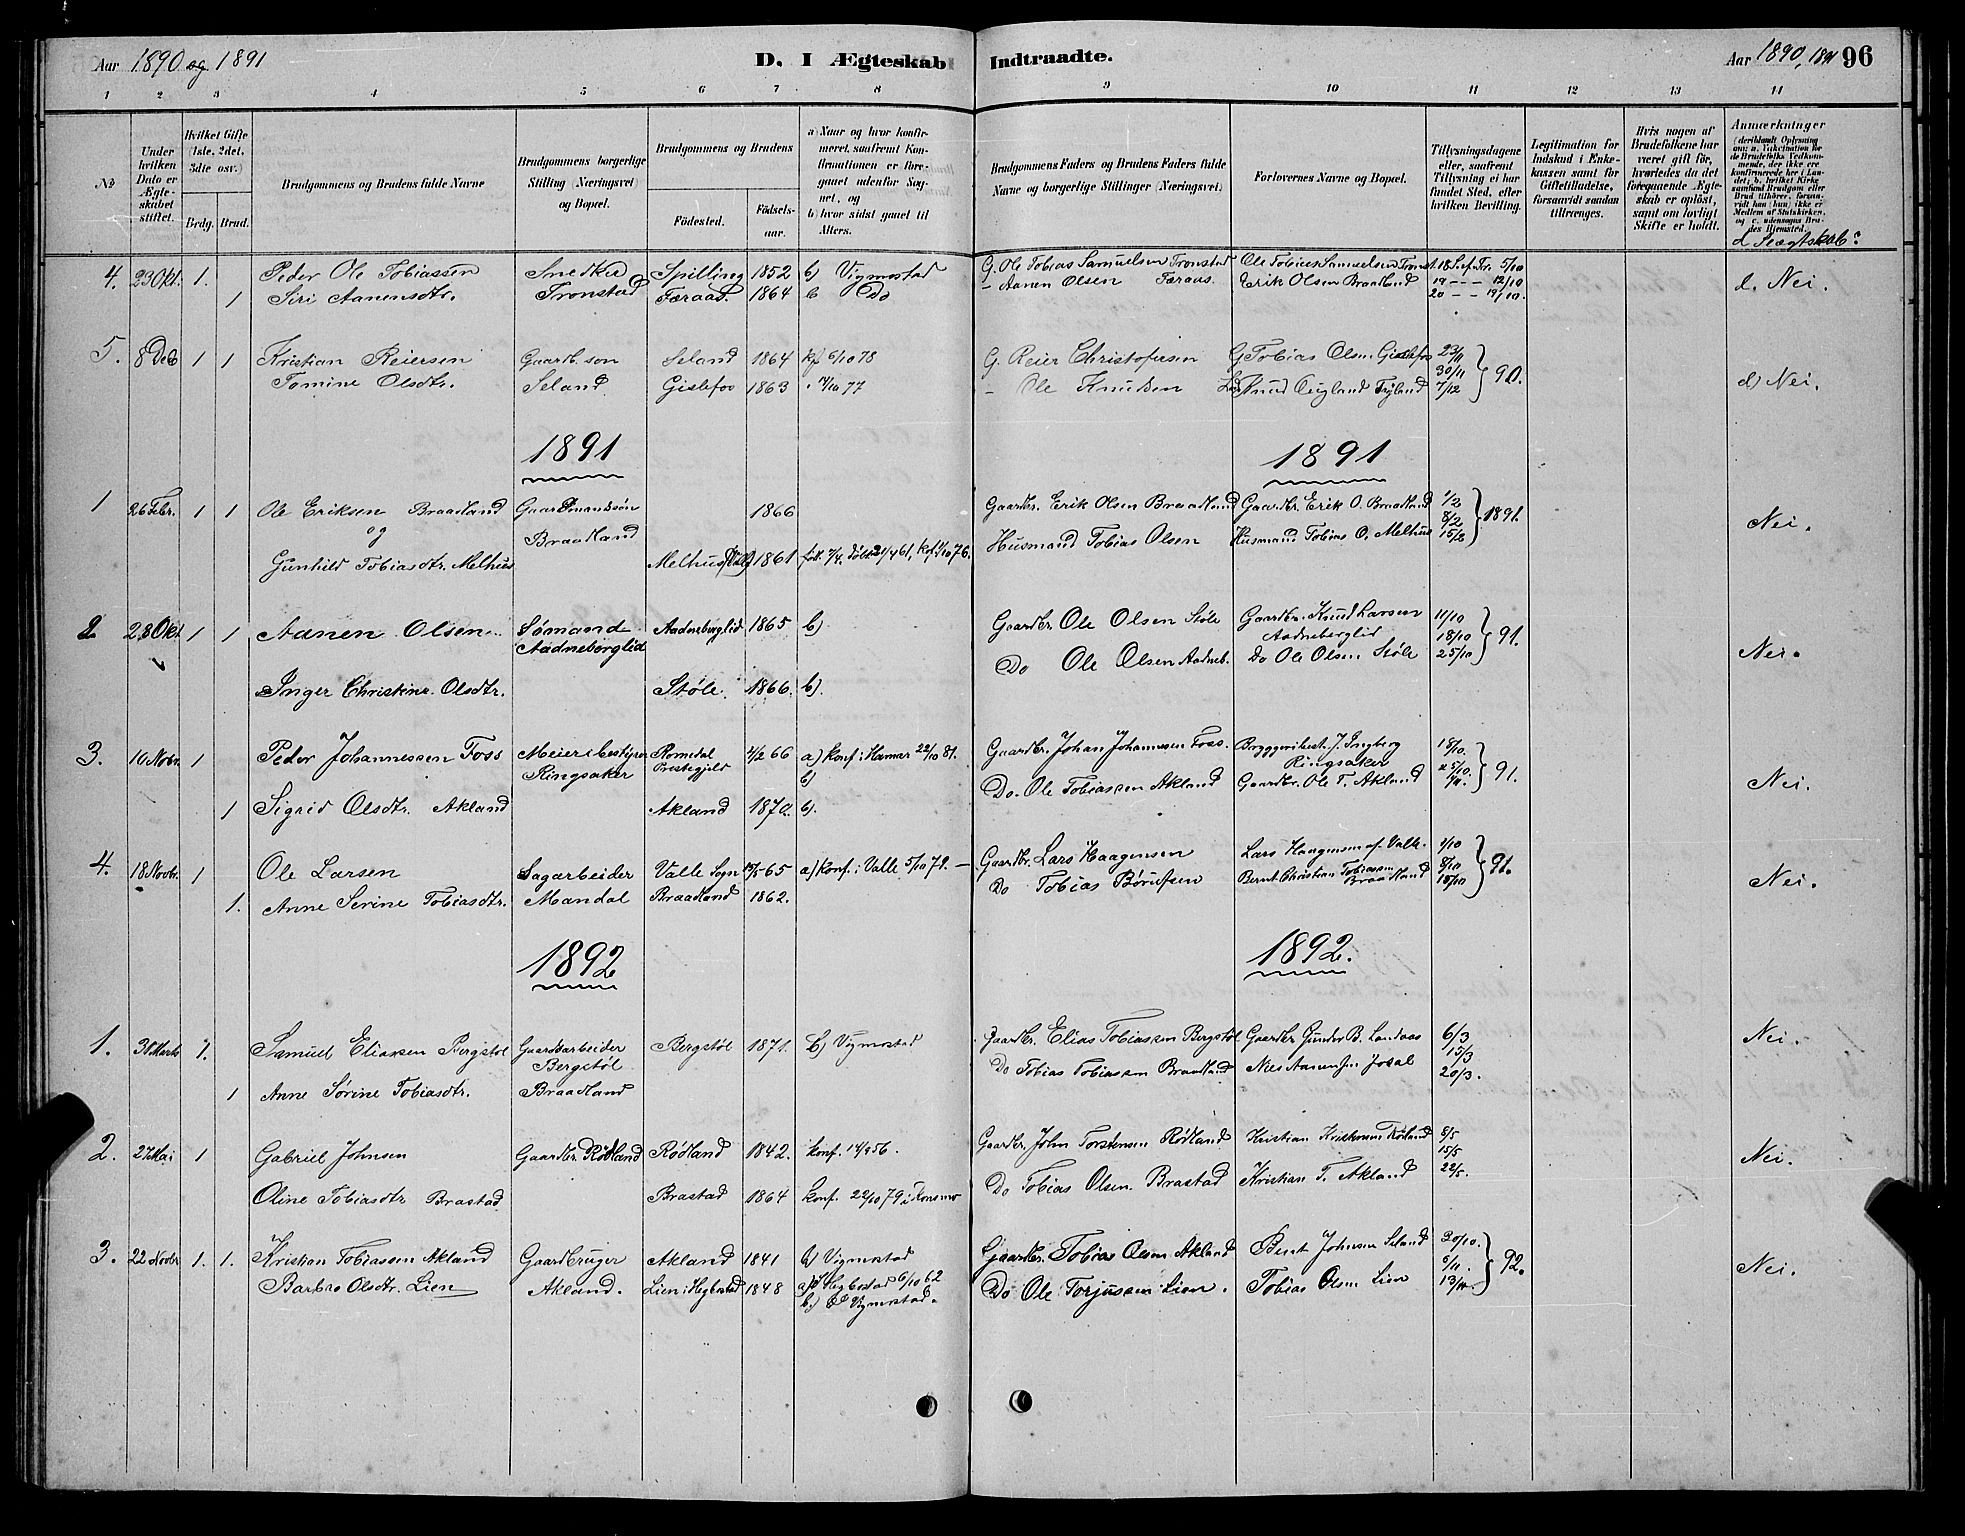 Aar 1890 og 1891
D. I Ægteskab Indtraadte.
Aar 1890, 1891 96
1 2 3 4 5 6 7 8 9 10 11 12 13 14
No
Under hvilken Dato er Ægteskabet stiftet.
Hvilket Gifte (1ste, 2det, 3die osv.)
Brdg. Brud.
Brudgommens og Brudens fulde Navne
Brudgommens borgerlige Stilling (Næringsvei) og Bopæl.
Brudgommens og Brudens
Födested.
Födselsaar.
a) Naar og hvor konfirmeret, saafremt Konfirmationen er foregaaet udenfor Sognet, og
b) hvor sidst gaaet til Alters.
Brudgommens Faders og Brudens Faders fulde Navne og borgerlige Stillinger (Næringsvei)
Forlovernes Navne og Bopæl.
Tillysningsdagene eller, saafremt Tillysning ei har fundet Sted, efter hvilken Bevilling.
Legitimation for Indskud i Enkekassen samt for Giftetilladelse, forsaavidt saadan tiltrænges.
Hvis nogen af Brudefolkene har været gift för, hvorledes da det foregaaende Ægteskab er oplöst, samt om lovligt Skifte er holdt.
Anmærkninger
d Slægtskab?
4. 23 Okt. 1. Peder Ole Tobiassen Snedker Spilling 1852 b) Vigmostad G. Ole Tobias Samuelsen Tronstad Ole Tobias Samuelsen Tronst. 5/10 d. Nei.
1 Siri Aanensdtr. Tronstad Færaas. 1864 b Do - Aanen Olsen Færaas. Erik Olsen Braadland 19 - - 12/10
20 - - 19/10.
5. 8 Decb 1 1 Kristian Reiersen Gaardb. son Seland 1864 kf 6/10 78 G. Reier Christofersen G Tobias Olsen Gislefos 23/11
30/11 } 90. d) Nei.
Tomine Olsdtr. Seland Gislefos 1863 77 - Ole Knudsen Knud Øigland Fryland 7/12
1891 1891
1 26 Febr. 1 1 Ole Eriksen Braadland Gaardmandsøn 1866 Gaardbr. Erik Olsen Braadland Gaardbr. Erik O. Braadland 1/2
og Braadland 8/2 } 1891. Nei.
Gunhild Tobiasdtr. Melhus Melhus 1861 Husmand Tobias Olsen Husmand Tobias O. Melhus 15/2
2 28 Okt 1 1 Aanen Olsen Sømand Aadneberglid 1865 b) Gaardbr. Ole Olsen Støle Gaardbr. Knud Larsen 11/10
Aadneberglid Aadneberglid 18/10 } 91. Nei.
Do Ole Olsen Aadneb. Do Ole Olsen Støle 25/10
Inger Christine Olsdtr. Støle. 1866. b).
3. 10 Novbr. 1 Peder Johannessen Foss Meieribestyrer Romedal 4/2 66 a) konf. i Hamar 22/10 81. Gaardbr. Johan Johannessen Foss. Bryggeribest. J. Ingberg 18/10.
Ringsaker Prestegjeld b) Ringsaker 25/10. } 91. Nei.
1 Sigrid Olsdtr. Akland Akland 1870. b). Do. Ole Tobiassen Akland Gaardbr. Ole T. Akland
4. 18 Novbr. 1 Ole Larsen Sagarbeider Valle Sogn 65 a) konf. i Valle 5/10 79. - Gaardbr. Lars Haagensen Lars Haagensen af Valle. 1/10
8/10 } 91. Nei.
1. Anne Serine Tobiasdtr. Mandal Braadland 1862. Do Tobias Børufsen Bernt Christian Tobiassen Braadland 18/10
1892 1892.
1. 31 Marts 1. Samuel Eliassen Bergstøl Gaardsarbeider Bergstøl 1871. b) Vigmostad Gaardbr. Elias Tobiassen Bergstøl Gaardbr Gunder B. Landaas 6/3 Nei.
Bergstøl 15/3
1 Anne Sørine Tobiasdtr. Braadland Do Tobias Tobiassen Braadland Nils Aanensen Josal 20/3.
2. 27 Mai 1 Gabriel Johnsen Gaardbr. Rødland Rødland 1842. konf. 14/9 56. Gaardbr. John Torstensen Rødland Kristian Kristensen Rødland 8/5
15/5 Nei.
Oline Tobiasdtr Brastad Brastad 1864 konf. 22/10 79 i Konsmo Do Tobias Olsen Brastad Kristian T. Akland 22/5.
3. 22 Novbr 1. 1. Kristian Tobiassen Akland Gaardbruger Akland 1841 b) Vigmostad Gaardbr. Tobias Olsen Akland Bernt Johnsen Seland 30/10.
6/11. } 92. Nei.
Barbro Olsdtr. Lien Akland. Lien i Hegbostad 1848 a) Hegbostad 6/10 62 Do Ole Torjussen Lien. Tobias Olsen Lien 13/11
b) Vigmostad.